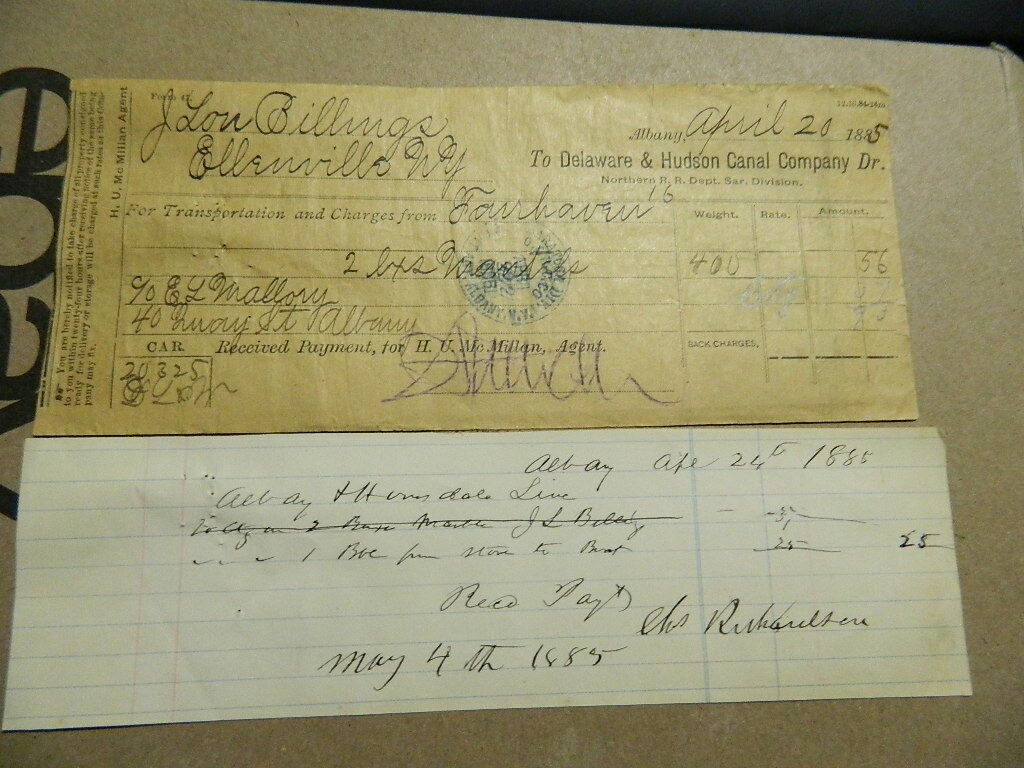 Form 47
12.16.84-14m
J Lou Billings
Ellenville NY
Albany, April 20 1885
To Delaware & Hudson Canal Company Dr.
Northern R. R. Dept. Sar. Division.
For Transportation and Charges from Fairhaven
Weight. Rate. Amount.
2 bxs 400 56
c/o E L Mallory
40 Quay St Albany
CAR Received Payment, for H. U. McMillan, Agent.
BACK CHARGES.
20325
H. U. McMillan Agent
You are hereby notified to take charge of all property consigned
to you within twenty-four hours after receiving notice of the same being
ready for delivery or storage will be charged at such rates as this Com-
pany may fix.
Albany 24 1885
Albany & Honsdale Line
2 J L
1 from store to Boat 25 25
Recd Payt
Chs Richardson
May 4th 1885